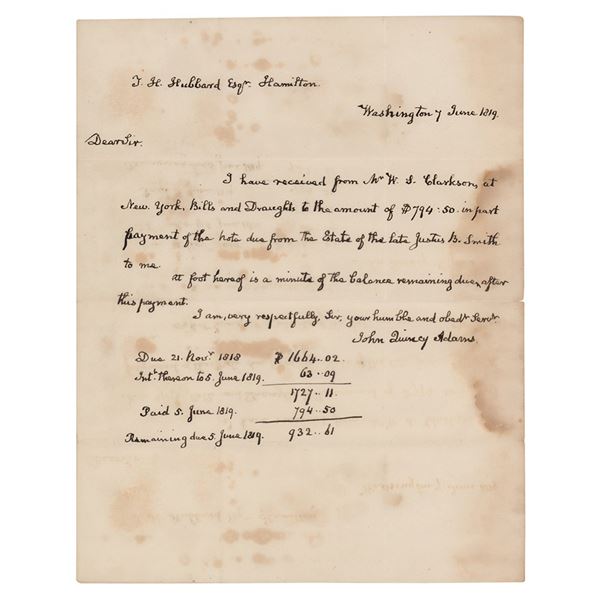 T. H. Hubbard Esqr. Hamilton.
Washington 7 June 1819.
Dear Sir.
I have received from Mr W. S. Clarkson, at
New York, Bills and Draughts to the amount of $794:50 in part
payment of the note due from the Estate of the late Justus B. Smith
to me.
At foot hereof is a minute of the balance remaining due, after
this payment.
I am, very respectfully, Sir, your humble and obedt Servt.
John Quincy Adams.
Due 21. Novr 1818 $1664..02.
Intt thereon to 5. June 1819. 63..09
1727..11.
Paid 5. June 1819. 794..50
Remaining due 5. June 1819. 932..61